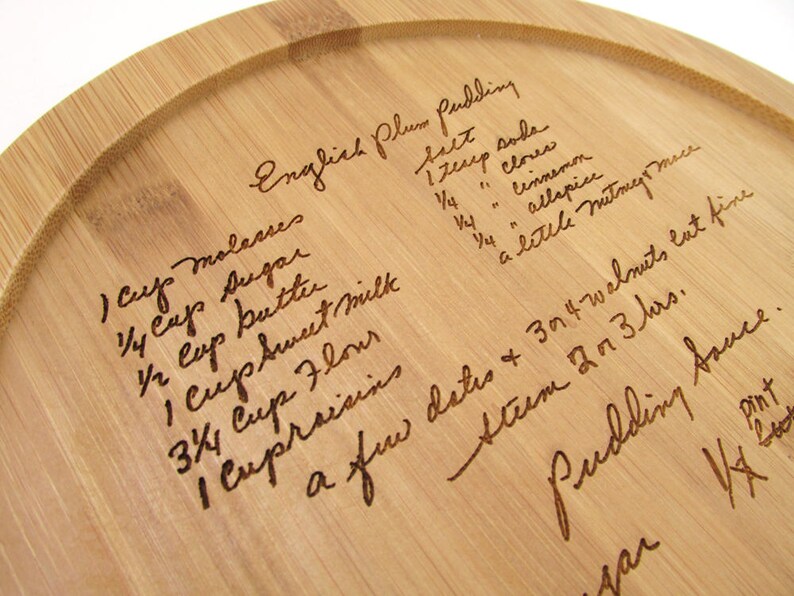 English Plum Pudding
1 Cup Molasses
1/4 Cup Sugar
1/2 Cup butter
1 Cup Sweet Milk
3 1/4 Cup Flour
1 Cup raisins
Salt
1 teasp soda
1/4 " cloves
1/4 " cinnemon
1/4 " allspice
a little nutmeg & mace
a few dates & 3 or 4 walnuts cut fine
Steam 2 or 3 hrs.
Pudding Sauce.
pint